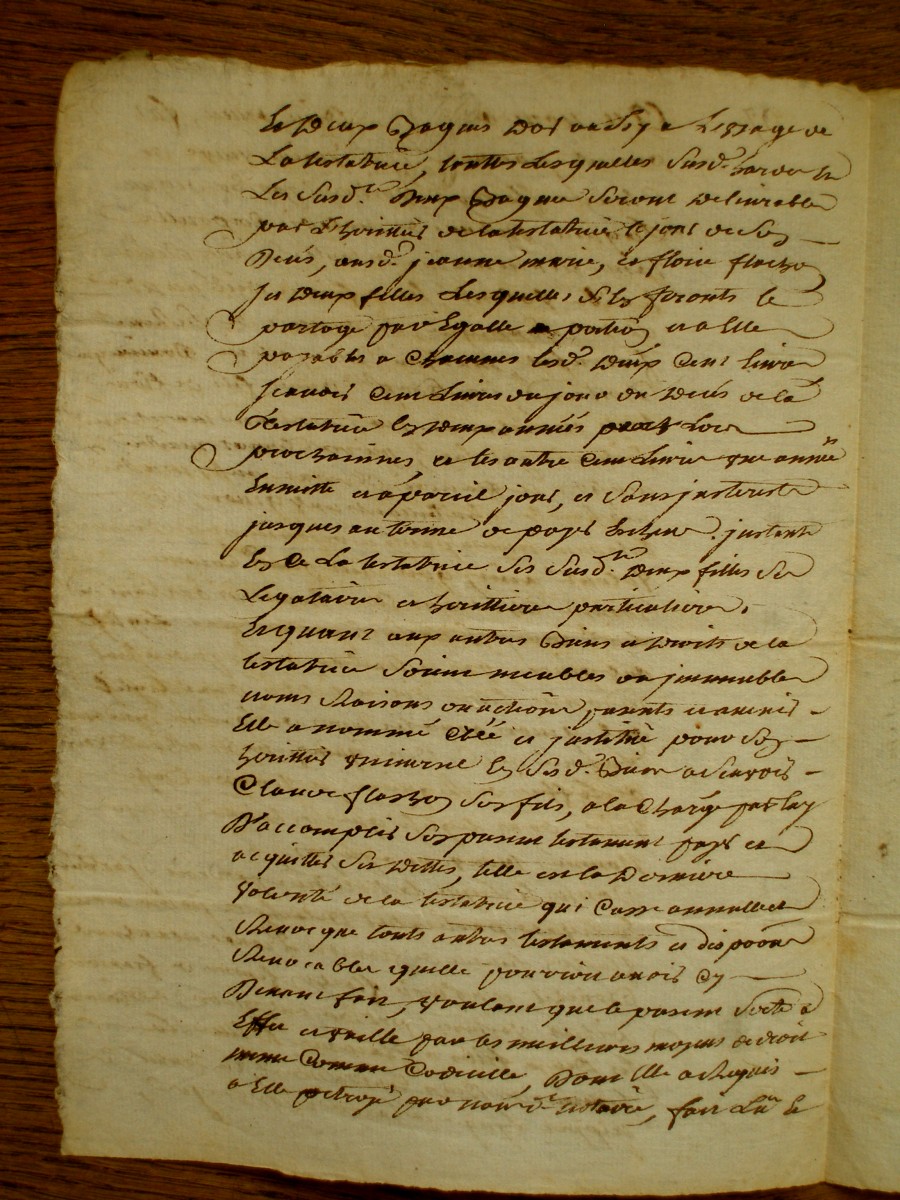 et deux Bagues d'or ausy a l'uzage de
La testatrice, touttes Lesquelles susd. hardes et
Les susd.te deux Bagues seront delivrables
par L'heritier de la testatrice le jour de son
Decés, ausd. jeanne marie, et
ses deux filles Lesquelles en feronts le
partage par Egalle portion et a Elle
payables a chacunes lesd. deux Cent livres
scavoir Cent Livres du jour du Decés de la
testatrice en deux années Lors
prochainnes, et les autre Cent Livres une année
Ensuitte et a pareil jour, et sans jnterests
jusques au terme de paye Escheu. jnstituant
La testatrice ses susd.te deux filles ses
Legataires et heritieres particulieres.
Et quant aux autres Biens et droits de la
testatrice soient meubles ou jmmeubles
noms Raisons ou actions presents et avenir
Elle a nommé Créé et jnstitué pour son
heritier universel en sesd. Biens a scavoir
Claude son fils, a la Charge par luy
D'accomplir son present testament payer et
acquitter ses dettes, telle est la Derniere
volonté de la testatrice qui Casse annulle et
Revocque touts autres testaments et dispo͠on
Revocables quelle pourroit avoir Cy
Devant fait, voulant que le present sorte a
Effet et vaille par les meilleures moyens de droit
mesme Comme Codicille, Dont Elle a Requis
a Elle octroyé par nous d. notaire, fait Lu et